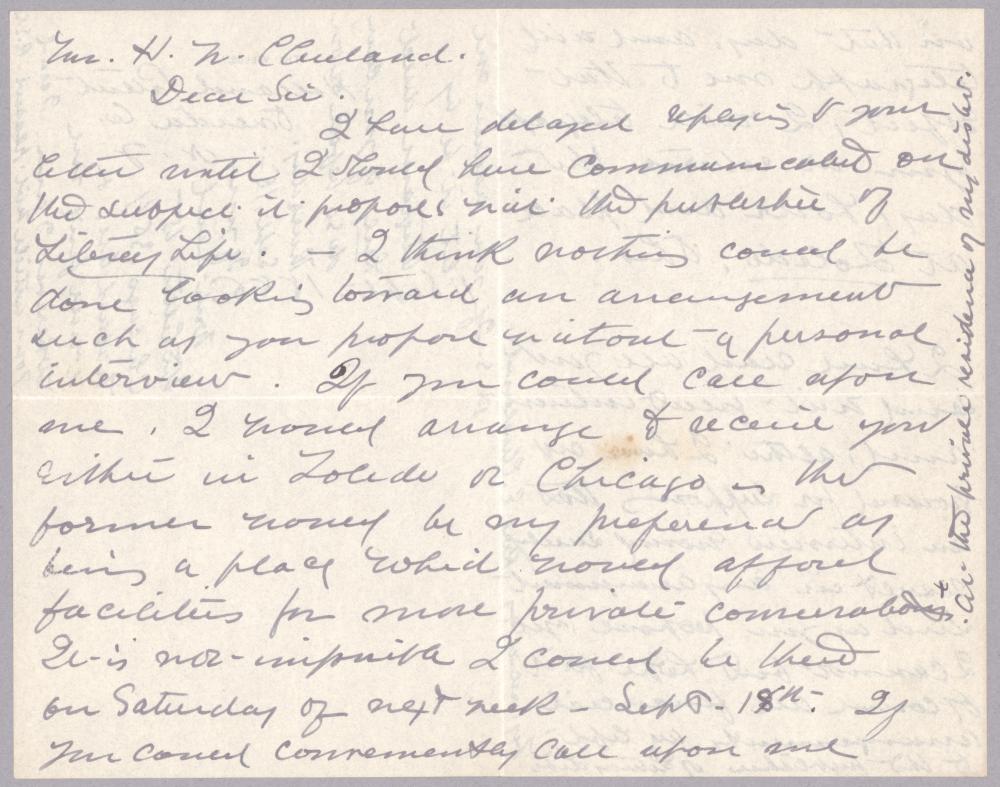 Mr. H. W. Cleveland.
Dear Sir.
I have delayed replying to your
letter until I should have communicated on
the subject it proposes with the publisher of
Literary Life. – I think nothing could be
done looking toward an arrangement
such as you propose without a personal
interview. If you could call upon
me, I would arrange to receive you
either in Toledo or Chicago – the
former would be my preference as
being a place which would afford
facilities for more private conversation
It is not impossible I could be there
on Saturday of next week – Sept. 18th. If
you could conveniently call upon me
at the private residence of my sister.